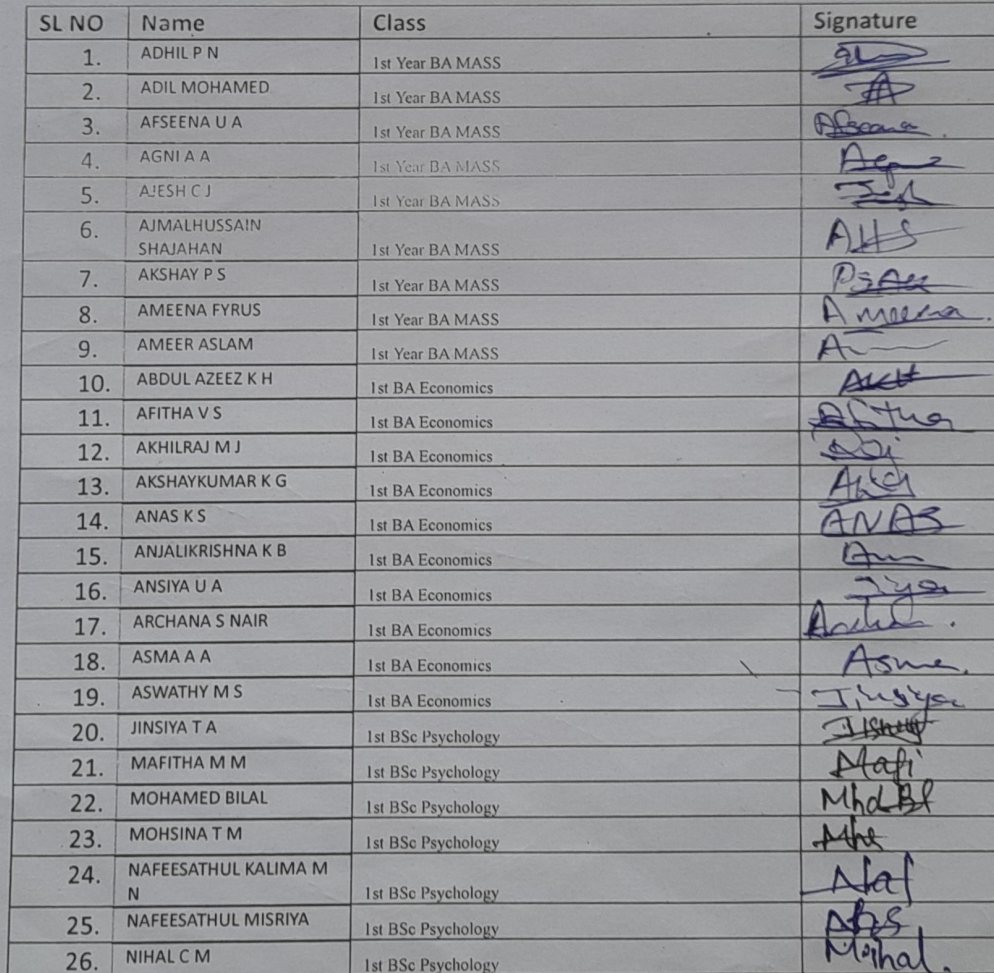 SL NO Name Class Signature
1. ADHIL P N 1st Year BA MASS
2. ADIL MOHAMED 1st Year BA MASS A
3. AFSEENA U A 1st Year BA MASS Afseena
4. AGNI A A 1st Year BA MASS
5. AJESH C J 1st Year BA MASS
6. AJMALHUSSAIN
SHAJAHAN 1st Year BA MASS AHS
7. AKSHAY P S 1st Year BA MASS
8. AMEENA FYRUS 1st Year BA MASS Ameena
9. AMEER ASLAM 1st Year BA MASS
10. ABDUL AZEEZ K H 1st BA Economics
11. AFITHA V S 1st BA Economics Afitha
12. AKHILRAJ M J 1st BA Economics
13. AKSHAYKUMAR K G 1st BA Economics
14. ANAS K S 1st BA Economics ANAS
15. ANJALIKRISHNA K B 1st BA Economics
16. ANSIYA U A 1st BA Economics
17. ARCHANA S NAIR 1st BA Economics
18. ASMA A A 1st BA Economics Asma
19. ASWATHY M S 1st BA Economics Jinsiya
20. JINSIYA T A 1st BSc Psychology
21. MAFITHA M M 1st BSc Psychology Mafi
22. MOHAMED BILAL 1st BSc Psychology
23. MOHSINA T M 1st BSc Psychology
24. NAFEESATHUL KALIMA M
N 1st BSc Psychology Naf
25. NAFEESATHUL MISRIYA 1st BSc Psychology
26. NIHAL C M 1st BSc Psychology